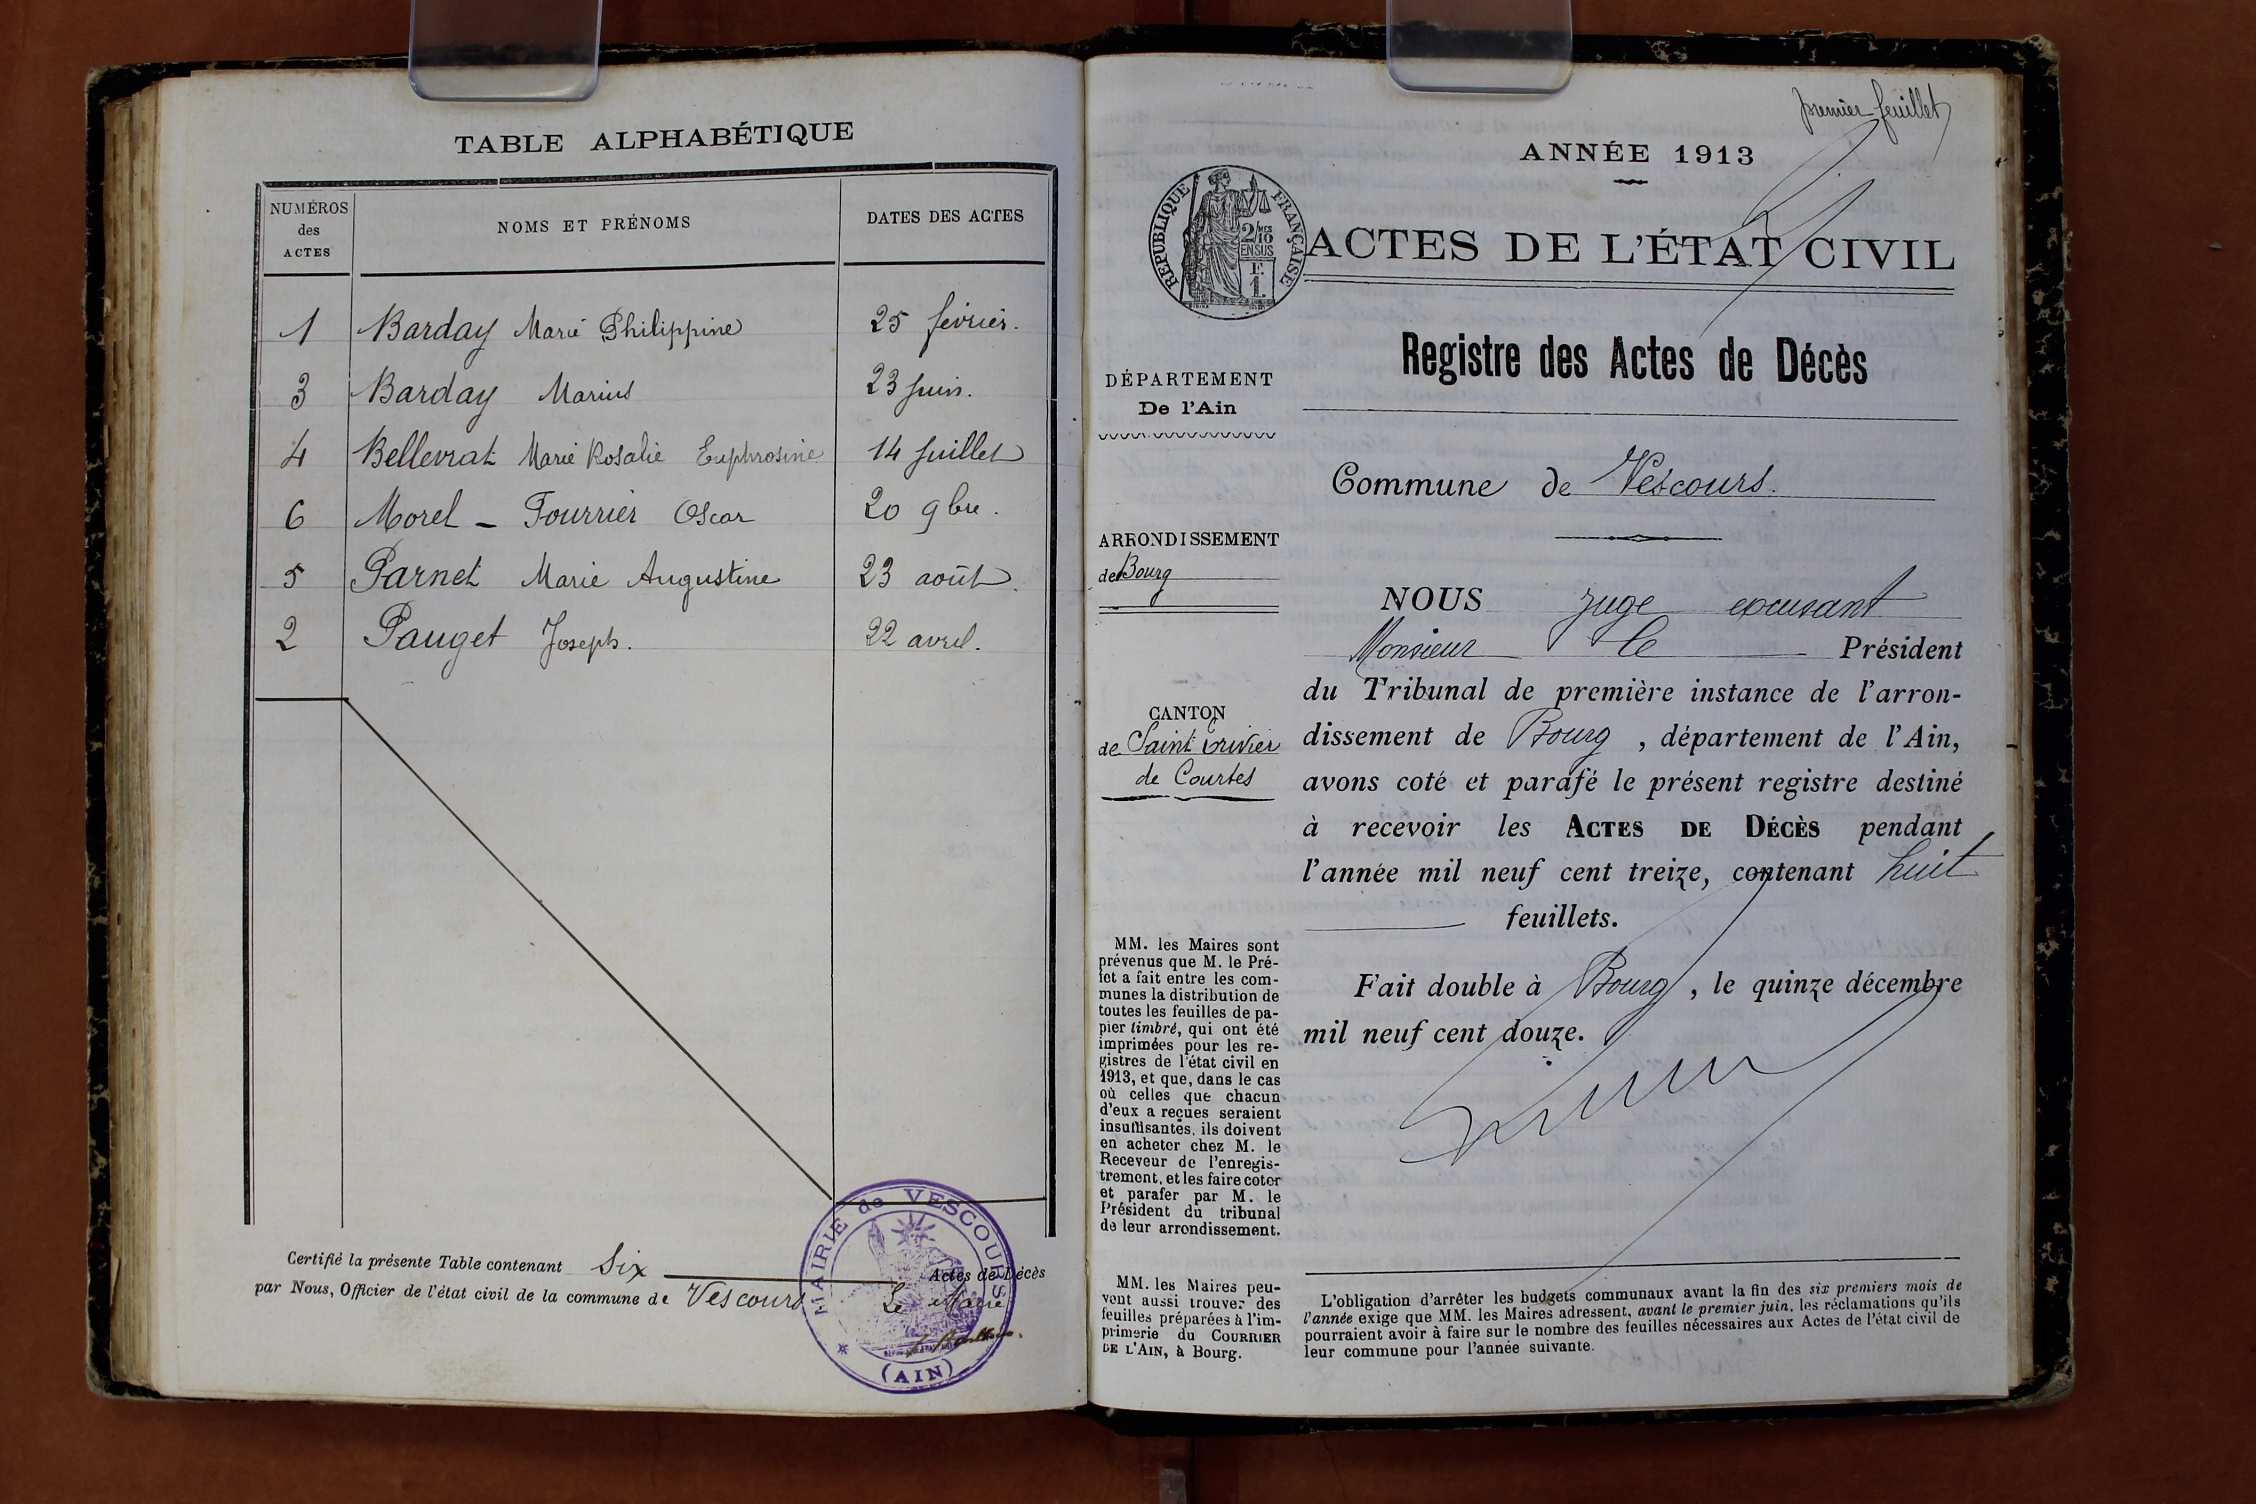 TABLE ALPHABÉTIQUE
NUMÉROS
des
ACTES
NOMS ET PRÉNOMS
DATES DES ACTES
1 Barday Marie Philippine 25 février.
3 Barday Marius 23 juin.
4 Bellevrat Marie Rosalie Euphrosine 14 juillet
6 Morel - Fourrier Oscar 20 9bre.
5 Parnet Marie Augustine 23 août.
2 Pauget Joseph. 22 avril.
Certifié la présente Table contenant Six Actes de Décès
par Nous, Officier de l'état civil de la commune de Vescours
Le Maire
MAIRIE de VESCOURS
(AIN)
premier feuillet
ANNÉE 1913
RÉPUBLIQUE FRANÇAISE
2/10MES
EN SUS
F.
1.
ACTES DE L'ÉTAT CIVIL
Registre des Actes de Décès
DÉPARTEMENT
De l'Ain
Commune de Vescours.
ARRONDISSEMENT
de Bourg
CANTON
de Saint Trivier
de Courtes
NOUS juge excusant
Monsieur le Président
du Tribunal de première instance de l'arron-
dissement de Bourg, département de l'Ain,
avons coté et parafé le présent registre destiné
à recevoir les ACTES DE DÉCÈS pendant
l'année mil neuf cent treize, contenant huit
feuillets.
Fait double à Bourg, le quinze décembre
mil neuf cent douze.
MM. les Maires sont
prévenus que M. le Pré-
fet a fait entre les com-
munes la distribution de
toutes les feuilles de pa-
pier timbré, qui ont été
imprimées pour les re-
gistres de l'état civil en
1913, et que, dans le cas
où celles que chacun
d'eux a reçues seraient
insuffisantes, ils doivent
en acheter chez M. le
Receveur de l'enregis-
trement, et les faire coter
et parafer par M. le
Président du tribunal
de leur arrondissement.
MM. les Maires peu-
vent aussi trouver des
feuilles préparées à l'im-
primerie du COURRIER
DE L'AIN, à Bourg.
L'obligation d'arrêter les budgets communaux avant la fin des six premiers mois de
l'année exige que MM. les Maires adressent, avant le premier juin, les réclamations qu'ils
pourraient avoir à faire sur le nombre des feuilles nécessaires aux Actes de l'état civil de
leur commune pour l'année suivante.